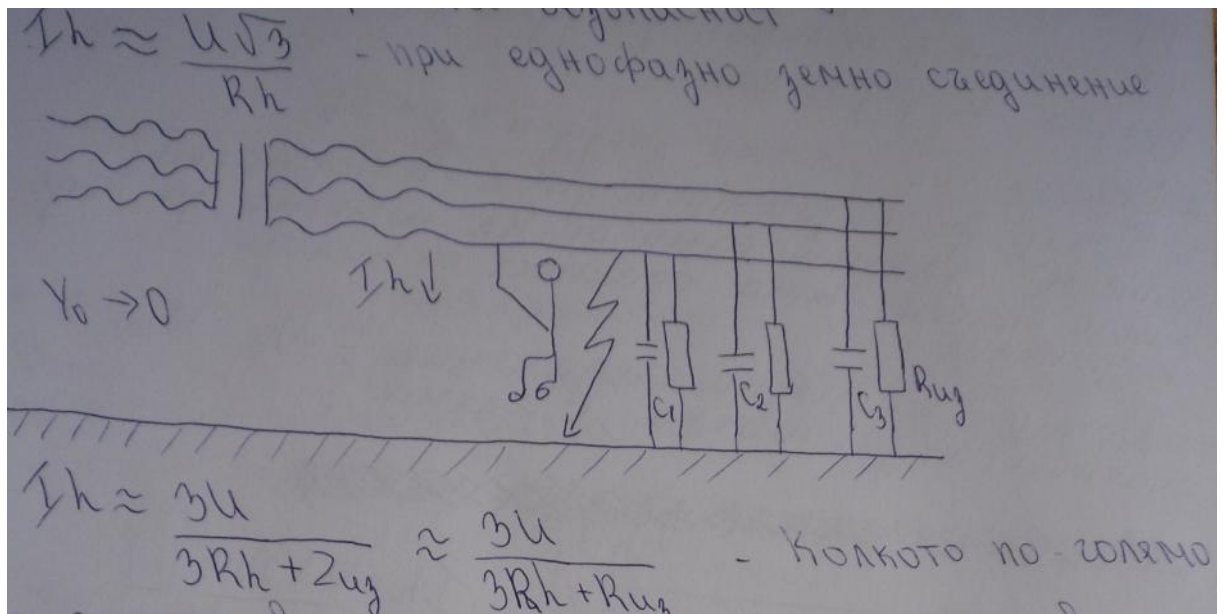 безопасност
Ih ≈ U√3 / Rh - при еднофазно земно съединение
Ih ↓
Y₀ → 0
C₁ C₂ C₃ Rиз
Ih ≈ 3U / (3Rh + Zиз) ≈ 3U / (3Rh + Rиз) - Колкото по-голямо